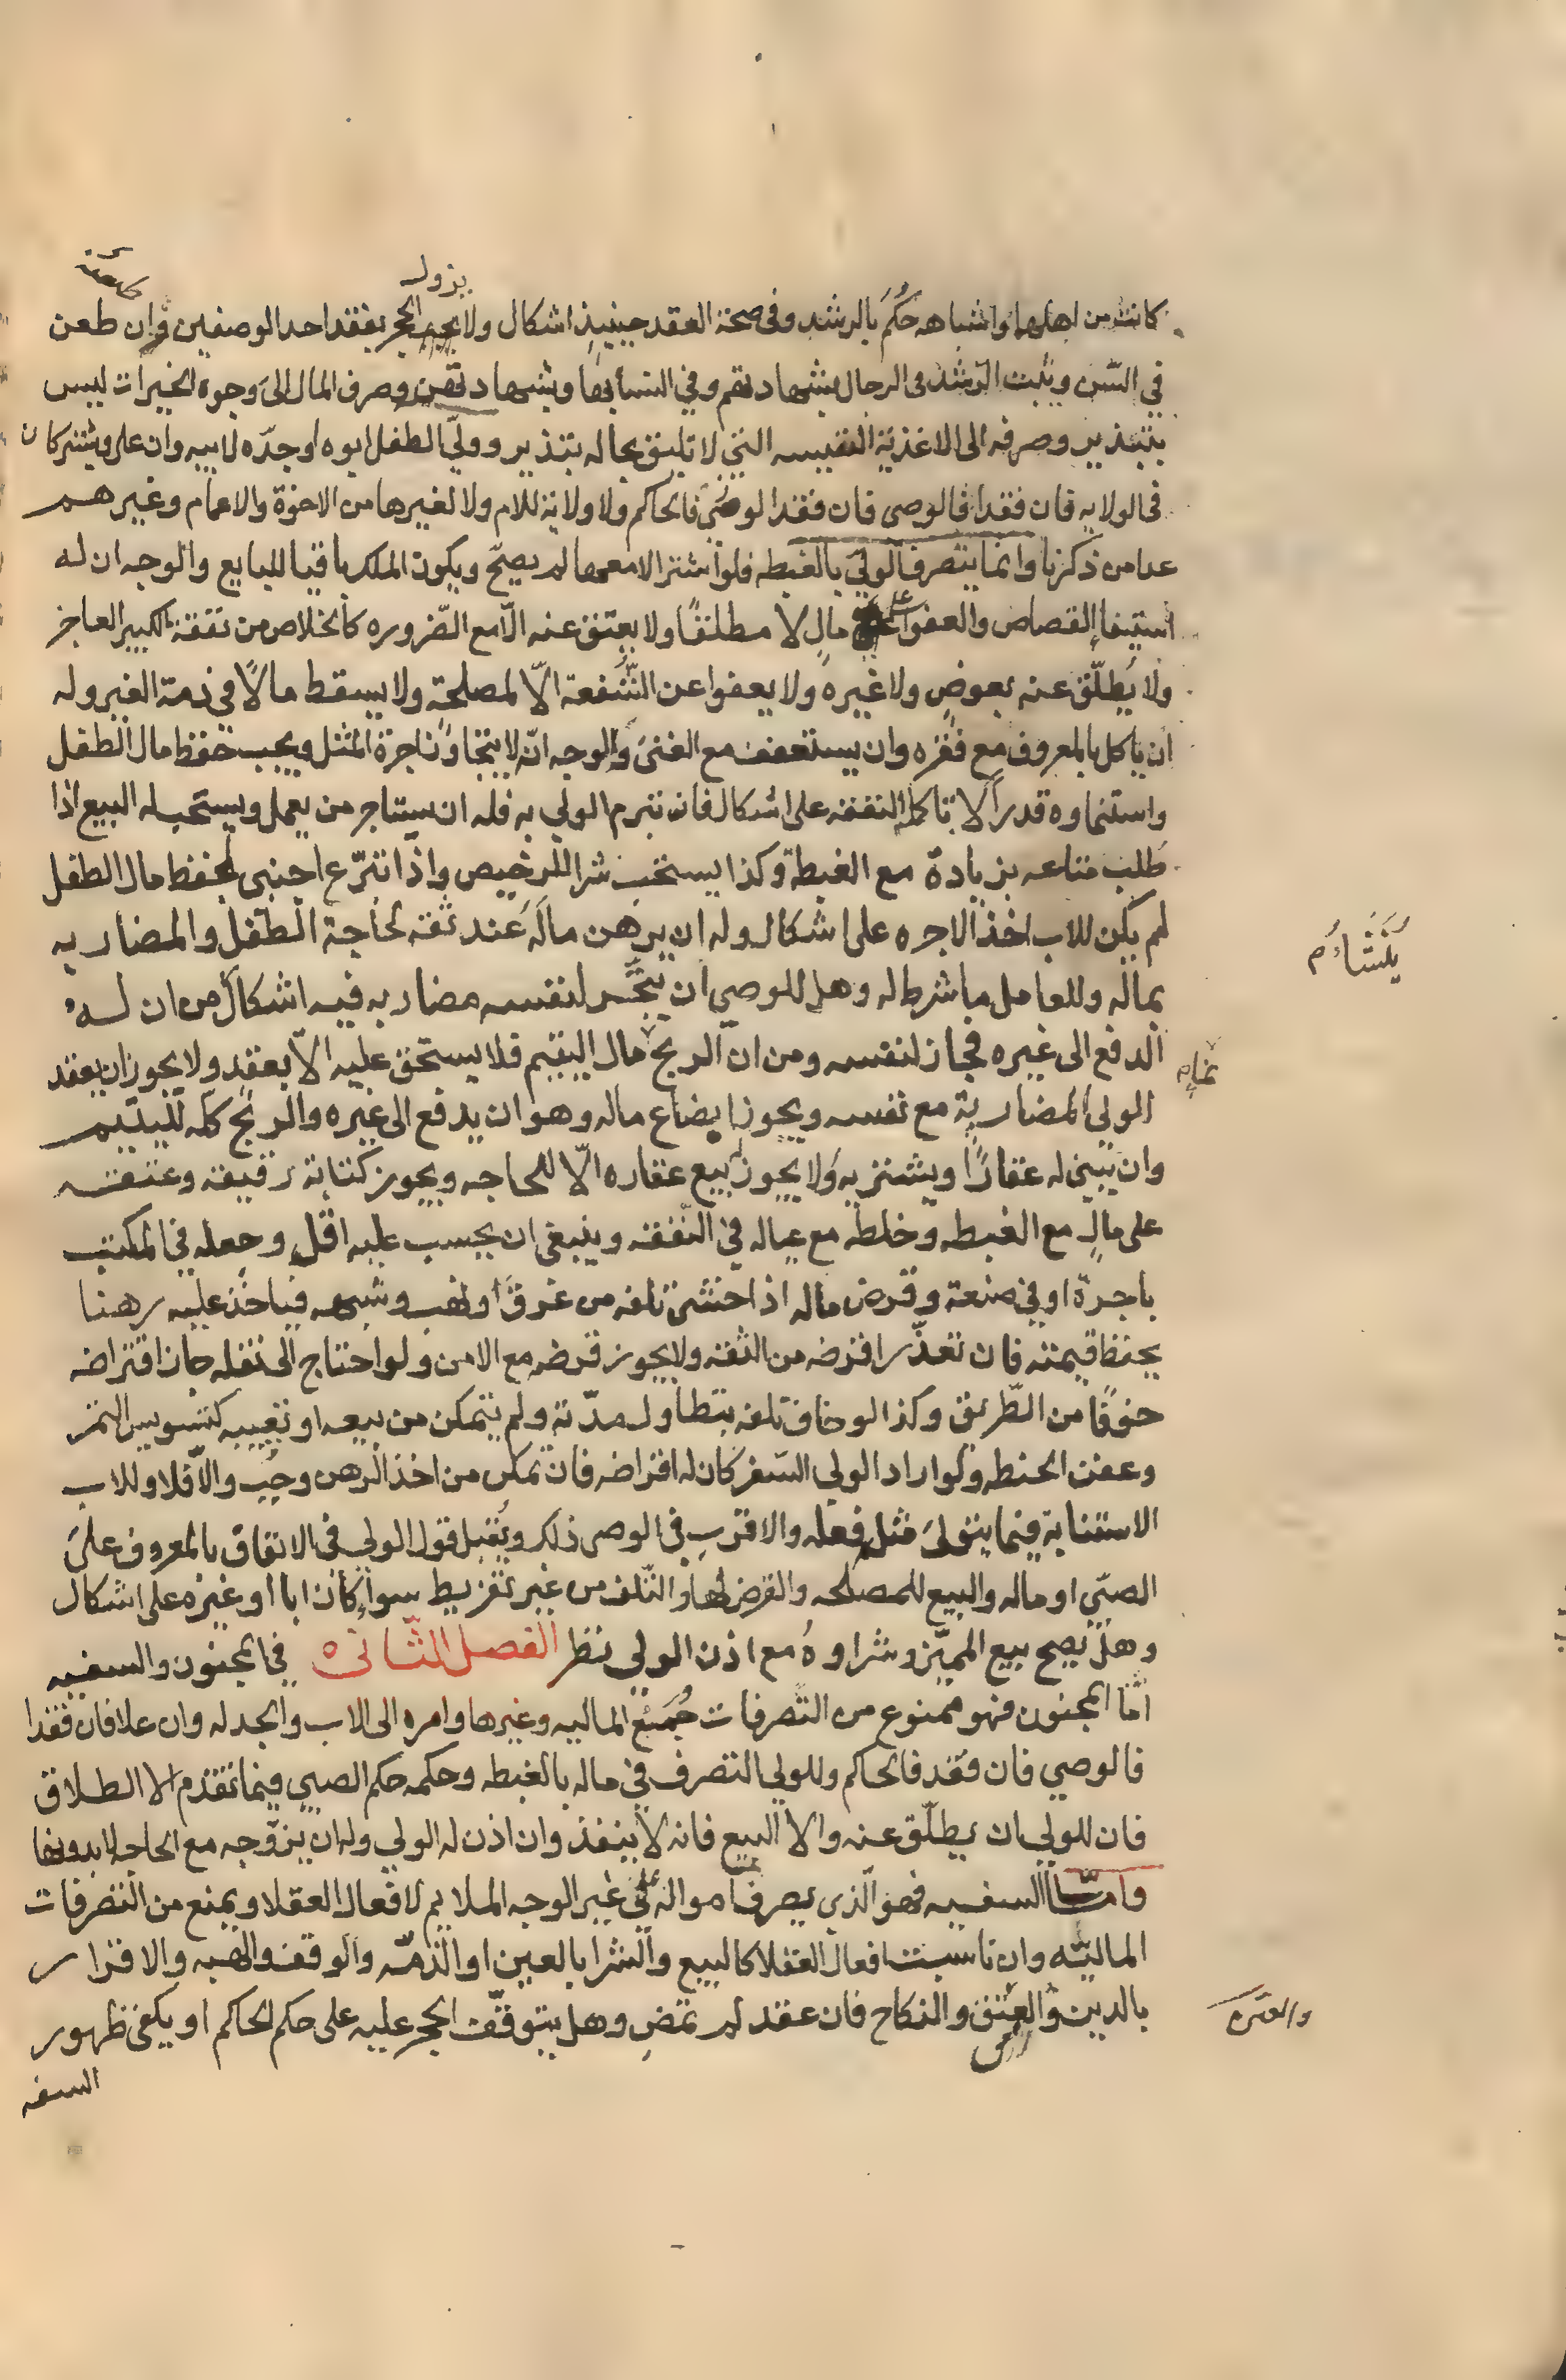 كانت من اهلها واشباهه حُكم بالرشد وفي صحة العقد حينيذٍ اشكال ولا يزول الحجر بفقد احد الوصفين وان طعن
في السّن ويثبت الرّشد في الرجال بشهادتهم وفي النسا بها وبشهادتهن وصرف المال الى وجوه الخيرات ليس
بتبذير وصرفه الى الاغذية النفيسه التي لا تليق بحاله تبذير ووليّ الطفل ابوه او جدّه لابيه وان علا ويشتركان
في الولايه فان فقدا فالوصي فان فقد الوصي فالحاكم ولا ولاية للام ولا لغيرها من الاخوة والاعمام وغيرهم
عدا من ذكرنا وانما يتصرف الوليّ بالغبطه فلو اشترا لا معها لم يصحّ ويكون الملك باقيا للبايع والوجه ان له
استيفا القصاص والعفو على مالٍ لا مطلقًا ولا يعتق عنه الّا مع الضّروره كالخلاص من نفقة الكبير العاجز
ولا يُطلّق عنه بعوضٍ ولا غيره ولا يعفوا عن الشّفعة الّا لمصلحة ولا يسقط مالًا في ذمة الغير وله
ان ياكل بالمعروف مع فقره وان يستعفف مع الغنى والوجه انّه لا يتجاوز اجرة المثل ويجب حفظ مال الطفل
واستنماوه قدراً لا تاكله النفقه على اشكال فان تبرم الولي به فله ان يستاجر من يعمل ويستحب له البيع اذا
طلب متاعه بزيادة مع الغبطة وكذا يستحب شرا الرخيص واذا تبرّع اجنبي بحفظ مال الطفل
لم يكن للاب اخذ الاجره على اشكال وله ان يرهن ماله عند ثقه لحاجة الطفل والمضاربه
بماله وللعامل ما شرط له وهل للوصي ان يتّجر لنفسه مضاربه فيه اشكال من ان له
الدفع الى غيره فجاز لنفسه ومن ان الربح مال اليتيم فلا يستحق عليه الّا بعقد ولا يجوز ان يعقد
الولي المضاربة مع نفسه ويجوز ابضاع ماله وهو ان يدفع الى غيره والربح كلّه لليتيم
وان يبني له عقارًا ويشتريه ولا يجوز بيع عقاره الّا للحاجه ويجوز كتابة رقيقه وعتقه
على مالٍ مع الغبطه وخلطه مع عياله في النّفقه وينبغي ان يحسب عليه اقل وجعله في المكتب
باجرة او في صنعة وقرض ماله اذا خشي تلفه من غرقٍ او نهب وشبهه فياخذ عليه رهنا
يحفظ قيمته فان تعذّر اقرضه من الثقه ولا يجوز قرضه مع الامن ولو احتاج الى نقله جاز اقتراضه
خوفًا من الطّريق وكذا لو خاف تلفه بتطاول مدّته ولم يتمكن من بيعه او تعييبه كتسويس التمر
وعفن الحنطه ولو اراد الولي السّفر كان له اقراضه فان تمكن من اخذ الرهن وجب والّا فلا وللاب
الاستنابة فيما يتولى مثله فعله والاقرب في الوصي ذلك ويُقبل قول الولي في الانفاق بالمعروف على
الصبّي او ماله والبيع للمصلحه والقرض لها والتّلف من غير تفريط سواء كان ابا او غيره على اشكال
وهل يصح بيع المميّز وشراوهُ مع اذن الولي نظر الفصل الثاني في المجنون والسفيه
امّا المجنون فهو ممنوع من التصرفات جُمَع الماليه وغيرها وامره الى الاب والجد له وان علا فان فقدا
فالوصي فان فقد فالحاكم وللولي التصرف في ماله بالغبطه وحكمه حكم الصبي فيما تقدم الا الطلاق
فان للولي ان يطلّق عنه والا البيع فانه لا ينفذ وان اذن له الولي وله ان يزوّجه مع الحاجه لا بدونها
وامّا السفيه فهو الّذي يصرف امواله في غير الوجه الملايم لافعال العقلا ويمنع من التصرفات
الماليّه وان ناسبت افعال العقلا كالبيع والشرا بالعين او الذمّه والوقف والهبه والاقرار
بالدين والعتق والنكاح فان عقد لم تمض وهل يتوقّف الحجر عليه على حكم الحاكم او يكفي ظهور
السفه